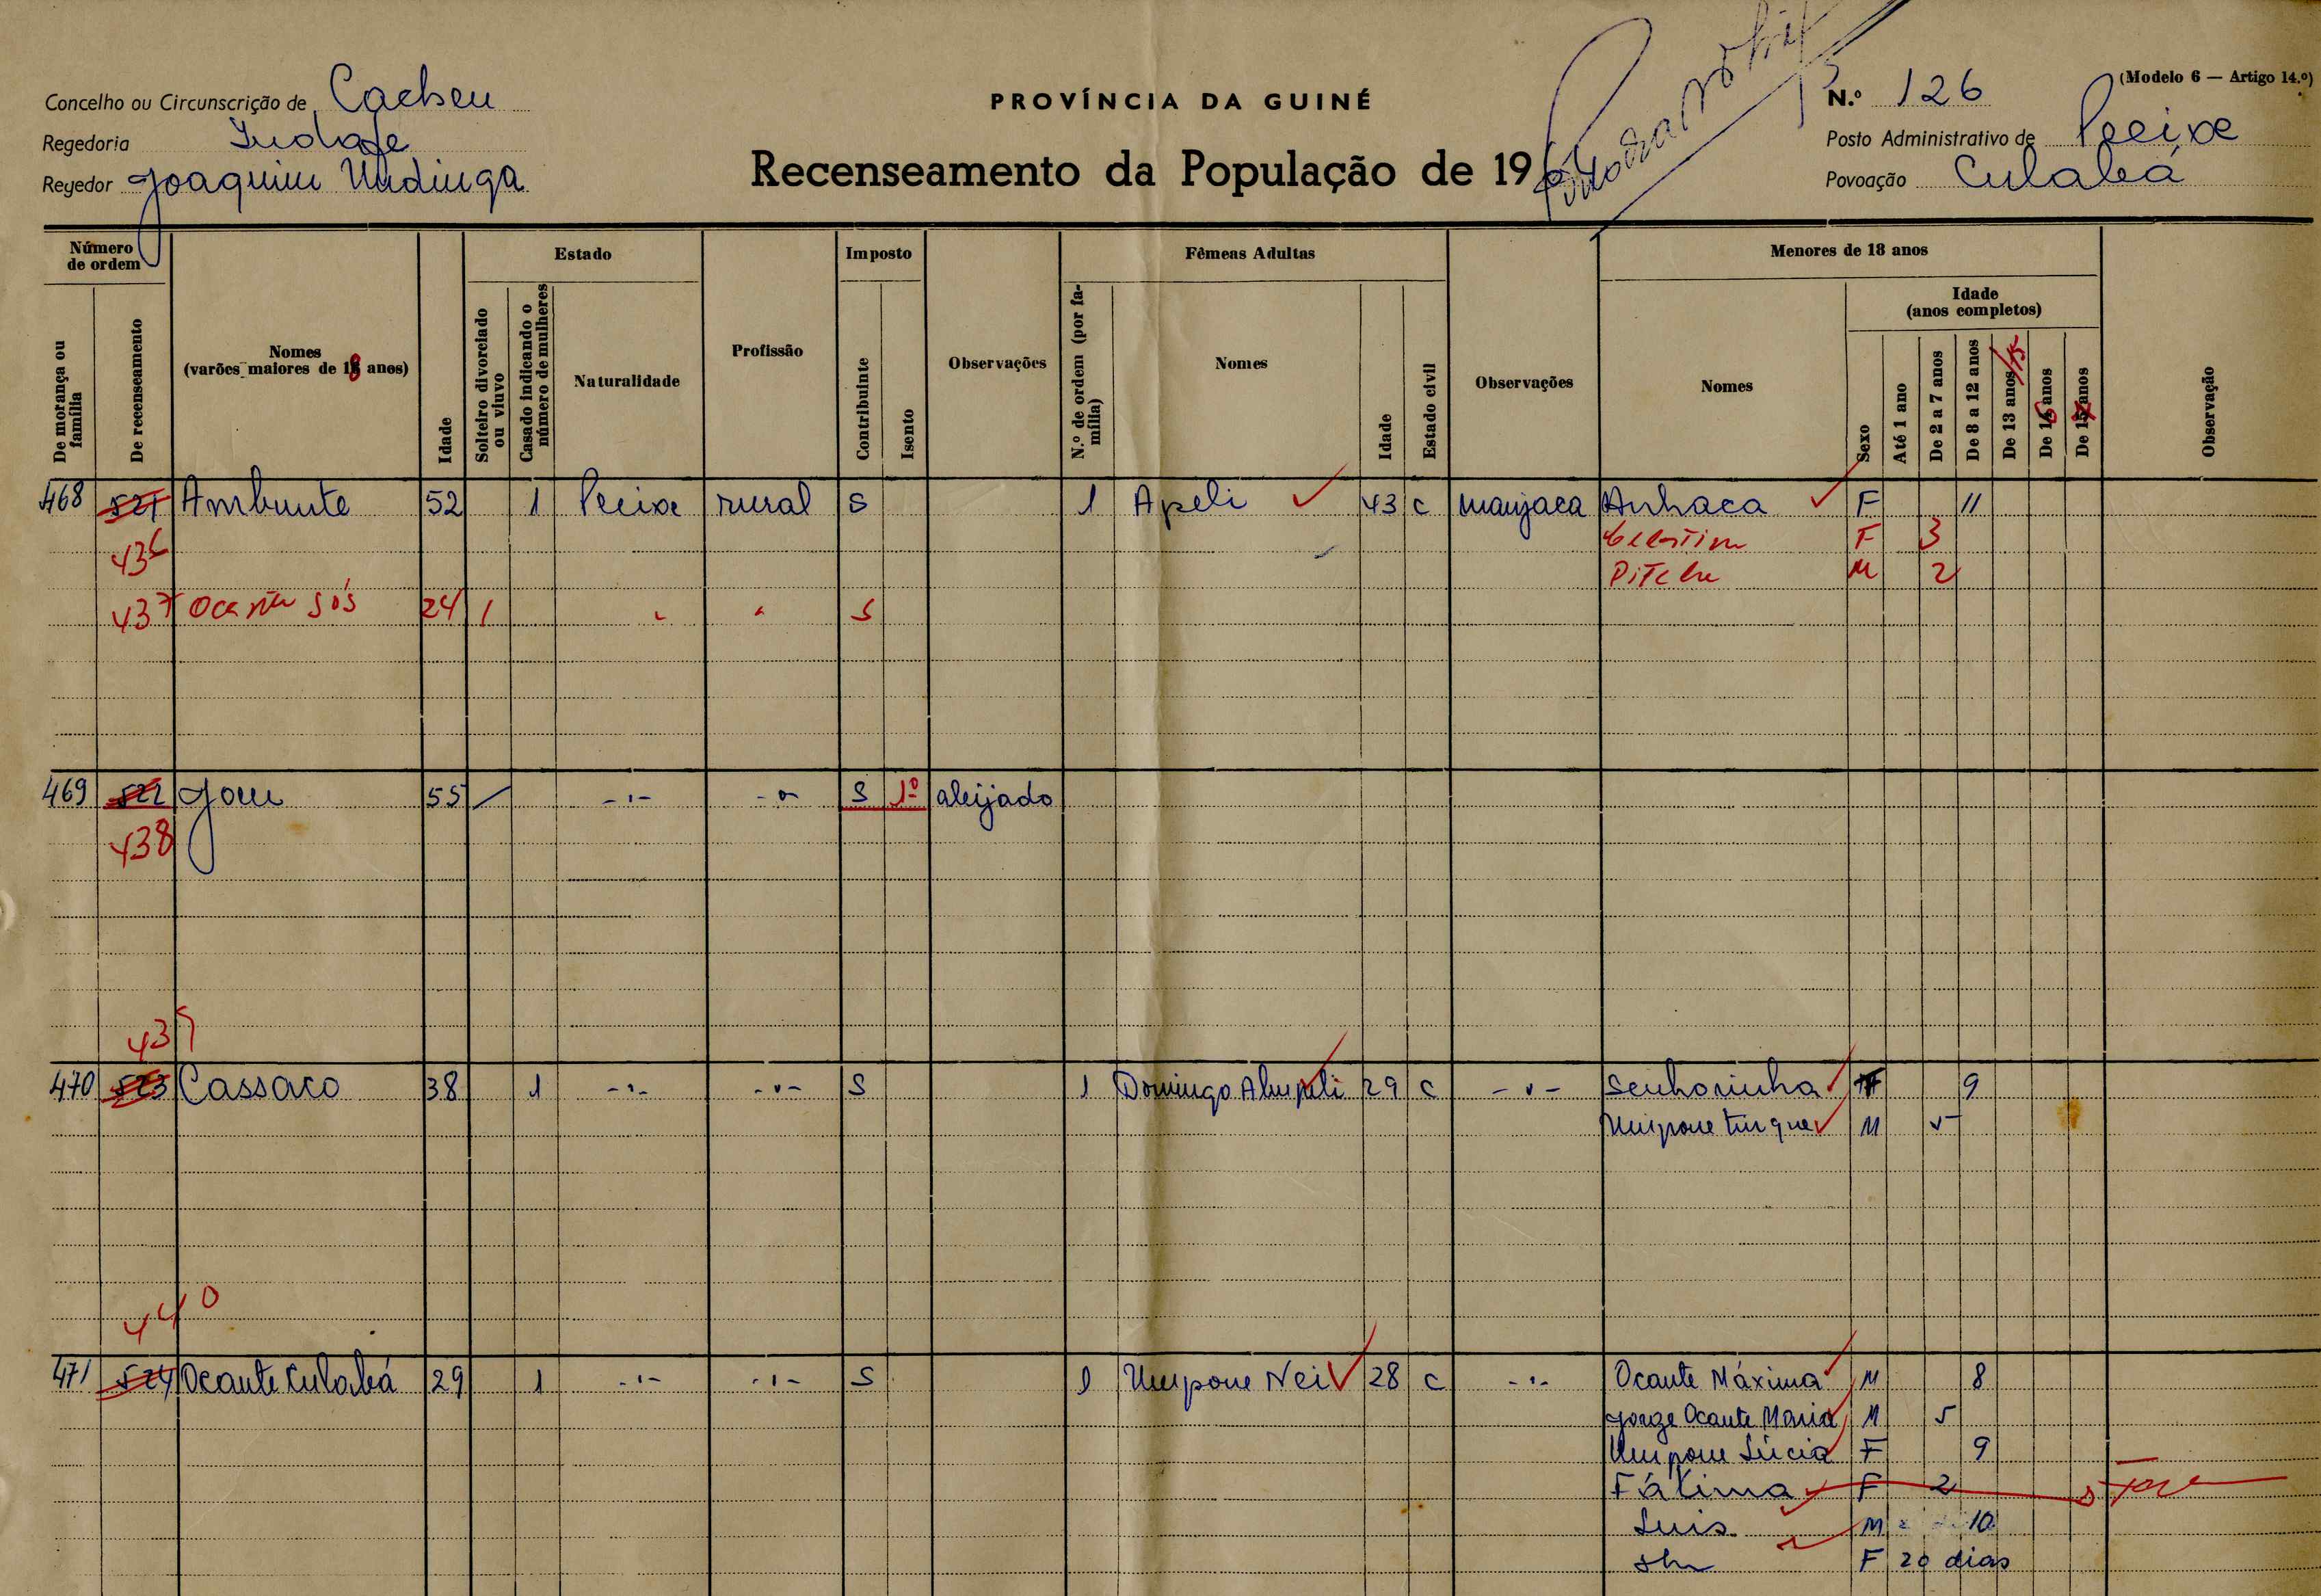 Concelho ou Circunscrição de Cacheu
Regedoria
Regedor Joaquim Undinga
PROVÍNCIA DA GUINÉ
Recenseamento da População de 196
(Modelo 6 — Artigo 14.º)
N.º 126
Posto Administrativo de Pecixe
Povoação Culabá
Número de ordem
De morança ou família
De recenseamento
Nomes
(varões maiores de 18 anos)
Idade
Estado
Solteiro divorciado ou viuvo
Casado indicando o número de mulheres
Naturalidade
Profissão
Imposto
Contribuinte
Isento
Observações
Fêmeas Adultas
N.º de ordem (por família)
Nomes
Idade
Estado civil
Observações
Menores de 18 anos
Nomes
Sexo
Idade
(anos completos)
Até 1 ano
De 2 a 7 anos
De 8 a 12 anos
De 13 anos /15
De 16 anos
De 17 anos
Observação
468 521 Ambunte 52 1 Pecixe rural S 1 Apeli 43 C manjaca Anhaca F 11
436 F 3
M 2
437 Ocante Sós 24 / " " S
469 522 Jou 55 / -"- -"- S 1º aleijado
438
439
470 523 Cassaco 38 1 -"- -"- S 1 Domingo 29 C -"- Senhorinha F 9
M 5
440
471 524 Ocante Culabá 29 1 -"- -"- S 1 Umpone Nei 28 C -"- Ocante Máxima M 8
Jorge Ocante Maria M 5
Umpone Lúcia F 9
Fátima F 2
Luis M 10
F 20 dias